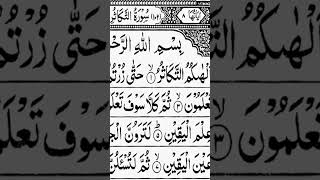 سُوْرَةُ التَّكَاثُرِ ١٠٢
بِسْمِ اللّٰهِ الرَّحْ
لْهٰىكُمُ التَّكَاثُرُ ۙ﴿۱﴾ حَتّٰى زُرْتُمُ
تَعْلَمُوْنَ ۙ﴿۳﴾ ثُمَّ كَلَّا سَوْفَ تَعْلَ
عِلْمَ الْيَقِيْنِ ؕ﴿۵﴾ لَتَرَوُنَّ الْجَ
عَيْنَ الْيَقِيْنِ ۙ﴿۷﴾ ثُمَّ لَتُسْـَٔلُنَّ